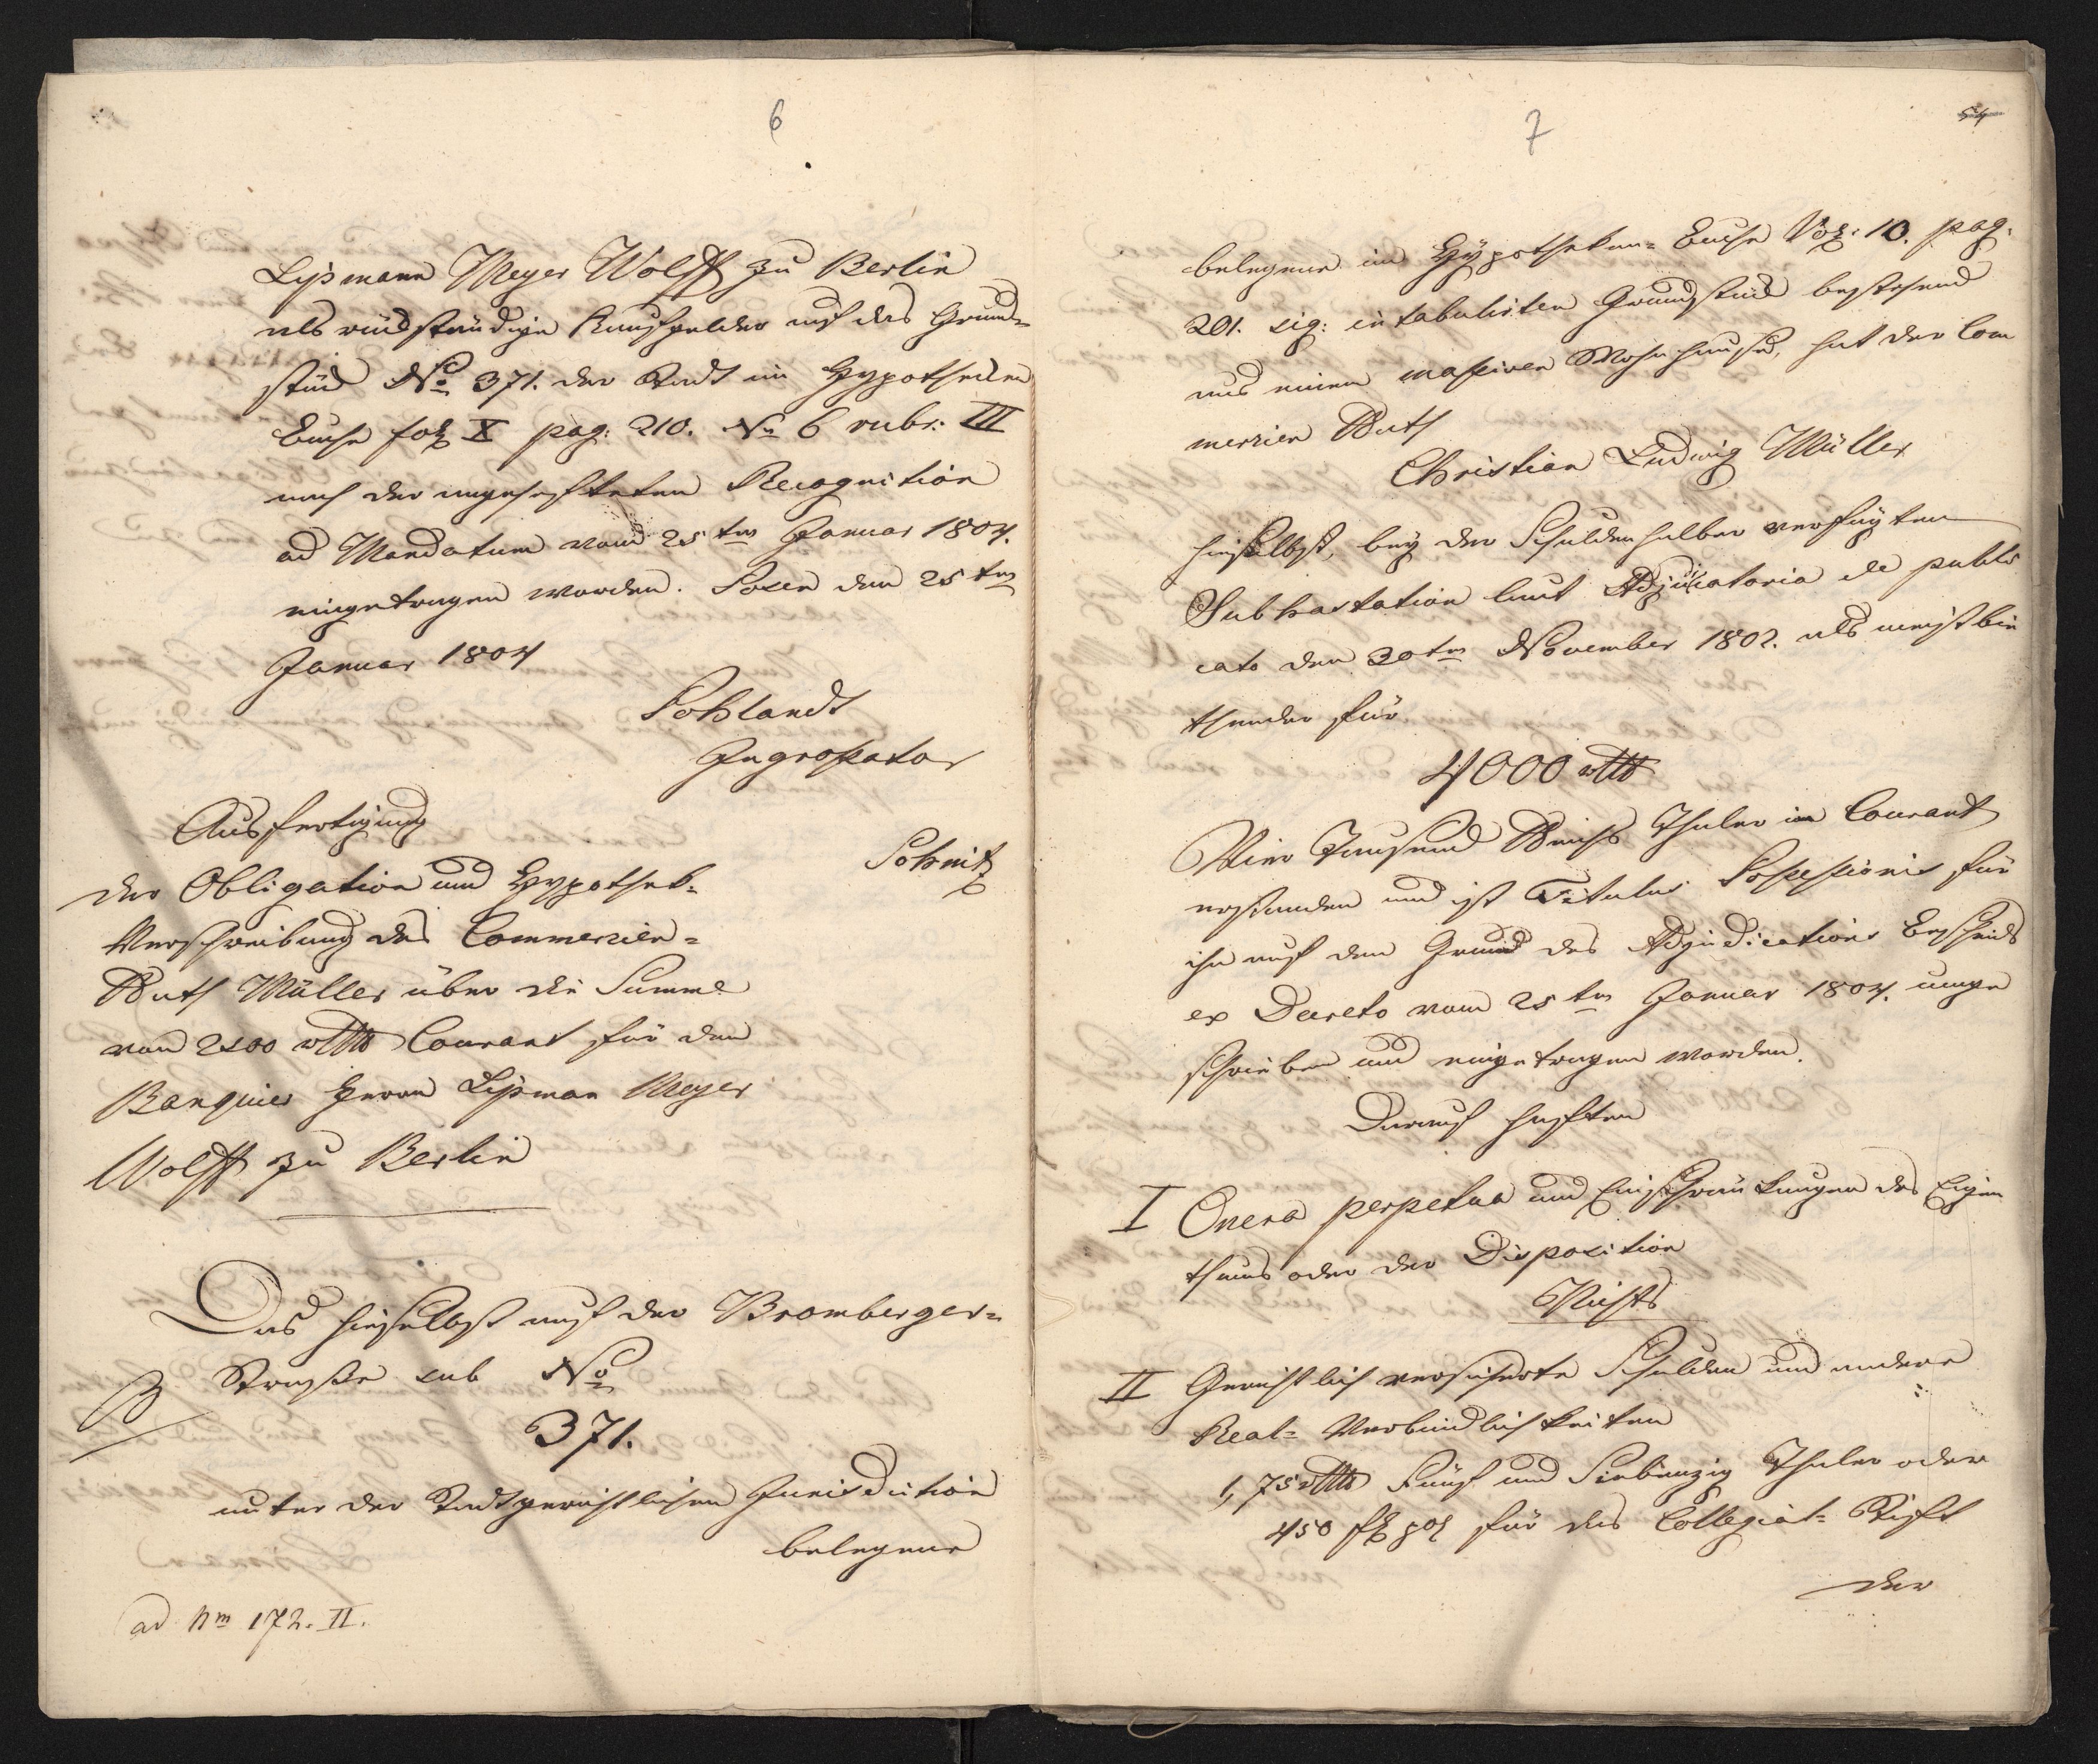 6
Lipmann Meyer Wolff zu Berlin
als rückständige Kaufgelder auf das Grund-
stück No 371. der Stadt im Hypotheken
Buche fol X pag: 210. No 6 rubr: III
nach der angehefteten Recognition
ad Mandatum vom 25ten Januar 1804.
eingetragen worden. Posen den 25ten
Januar 1804
Pohlandt
Ingrossator
Ausfertigung
der Obligation und Hypothek-
Verschreibung des Commercien-
Rath Müller über die Summe
von 2500 rtlr Courant für den
Banquier Herrn Lipman Meyer
Wolff zu Berlin
Schmitz
Das hieselbst auf der Bromberger-
Straße sub No
371.
unter der Stadtgerichtlichen Jurisdiction
belegene
ad Nm 172. II.
7
belegene im Hypotheken-Buche Vol: 10. pag.
201. sig: intabulirten Grundstück bestehend
aus einem massiven Wohnhause, hat der Com
mercien Rath
Christian Ludwig Müller
hieselbst, bey der Schuldenhalber verfügten
Subhastation laut Adjudicatoria de publi
cato den 30ten November 1802. als meistbie
thender für
4000 rtlr
Vier Tausend Reichs Thaler in Courant
erstanden und ist Titulus Possessionis für
ihn auf den Grund des Adjudications Bescheids
ex Decreto vom 25ten Januar 1804. umge
schrieben und eingetragen worden.
Darauf haften
I Onera perpetua und Einschränkungen des Eigen
thums oder der Disposition
Nichts
II Gerichtlich versicherte Schulden und andere
Real-Verbindlichkeiten
1, 75 rtlr Fünf und Siebenzig Thaler oder
450 fl pol für das Collegiat-Stift
der